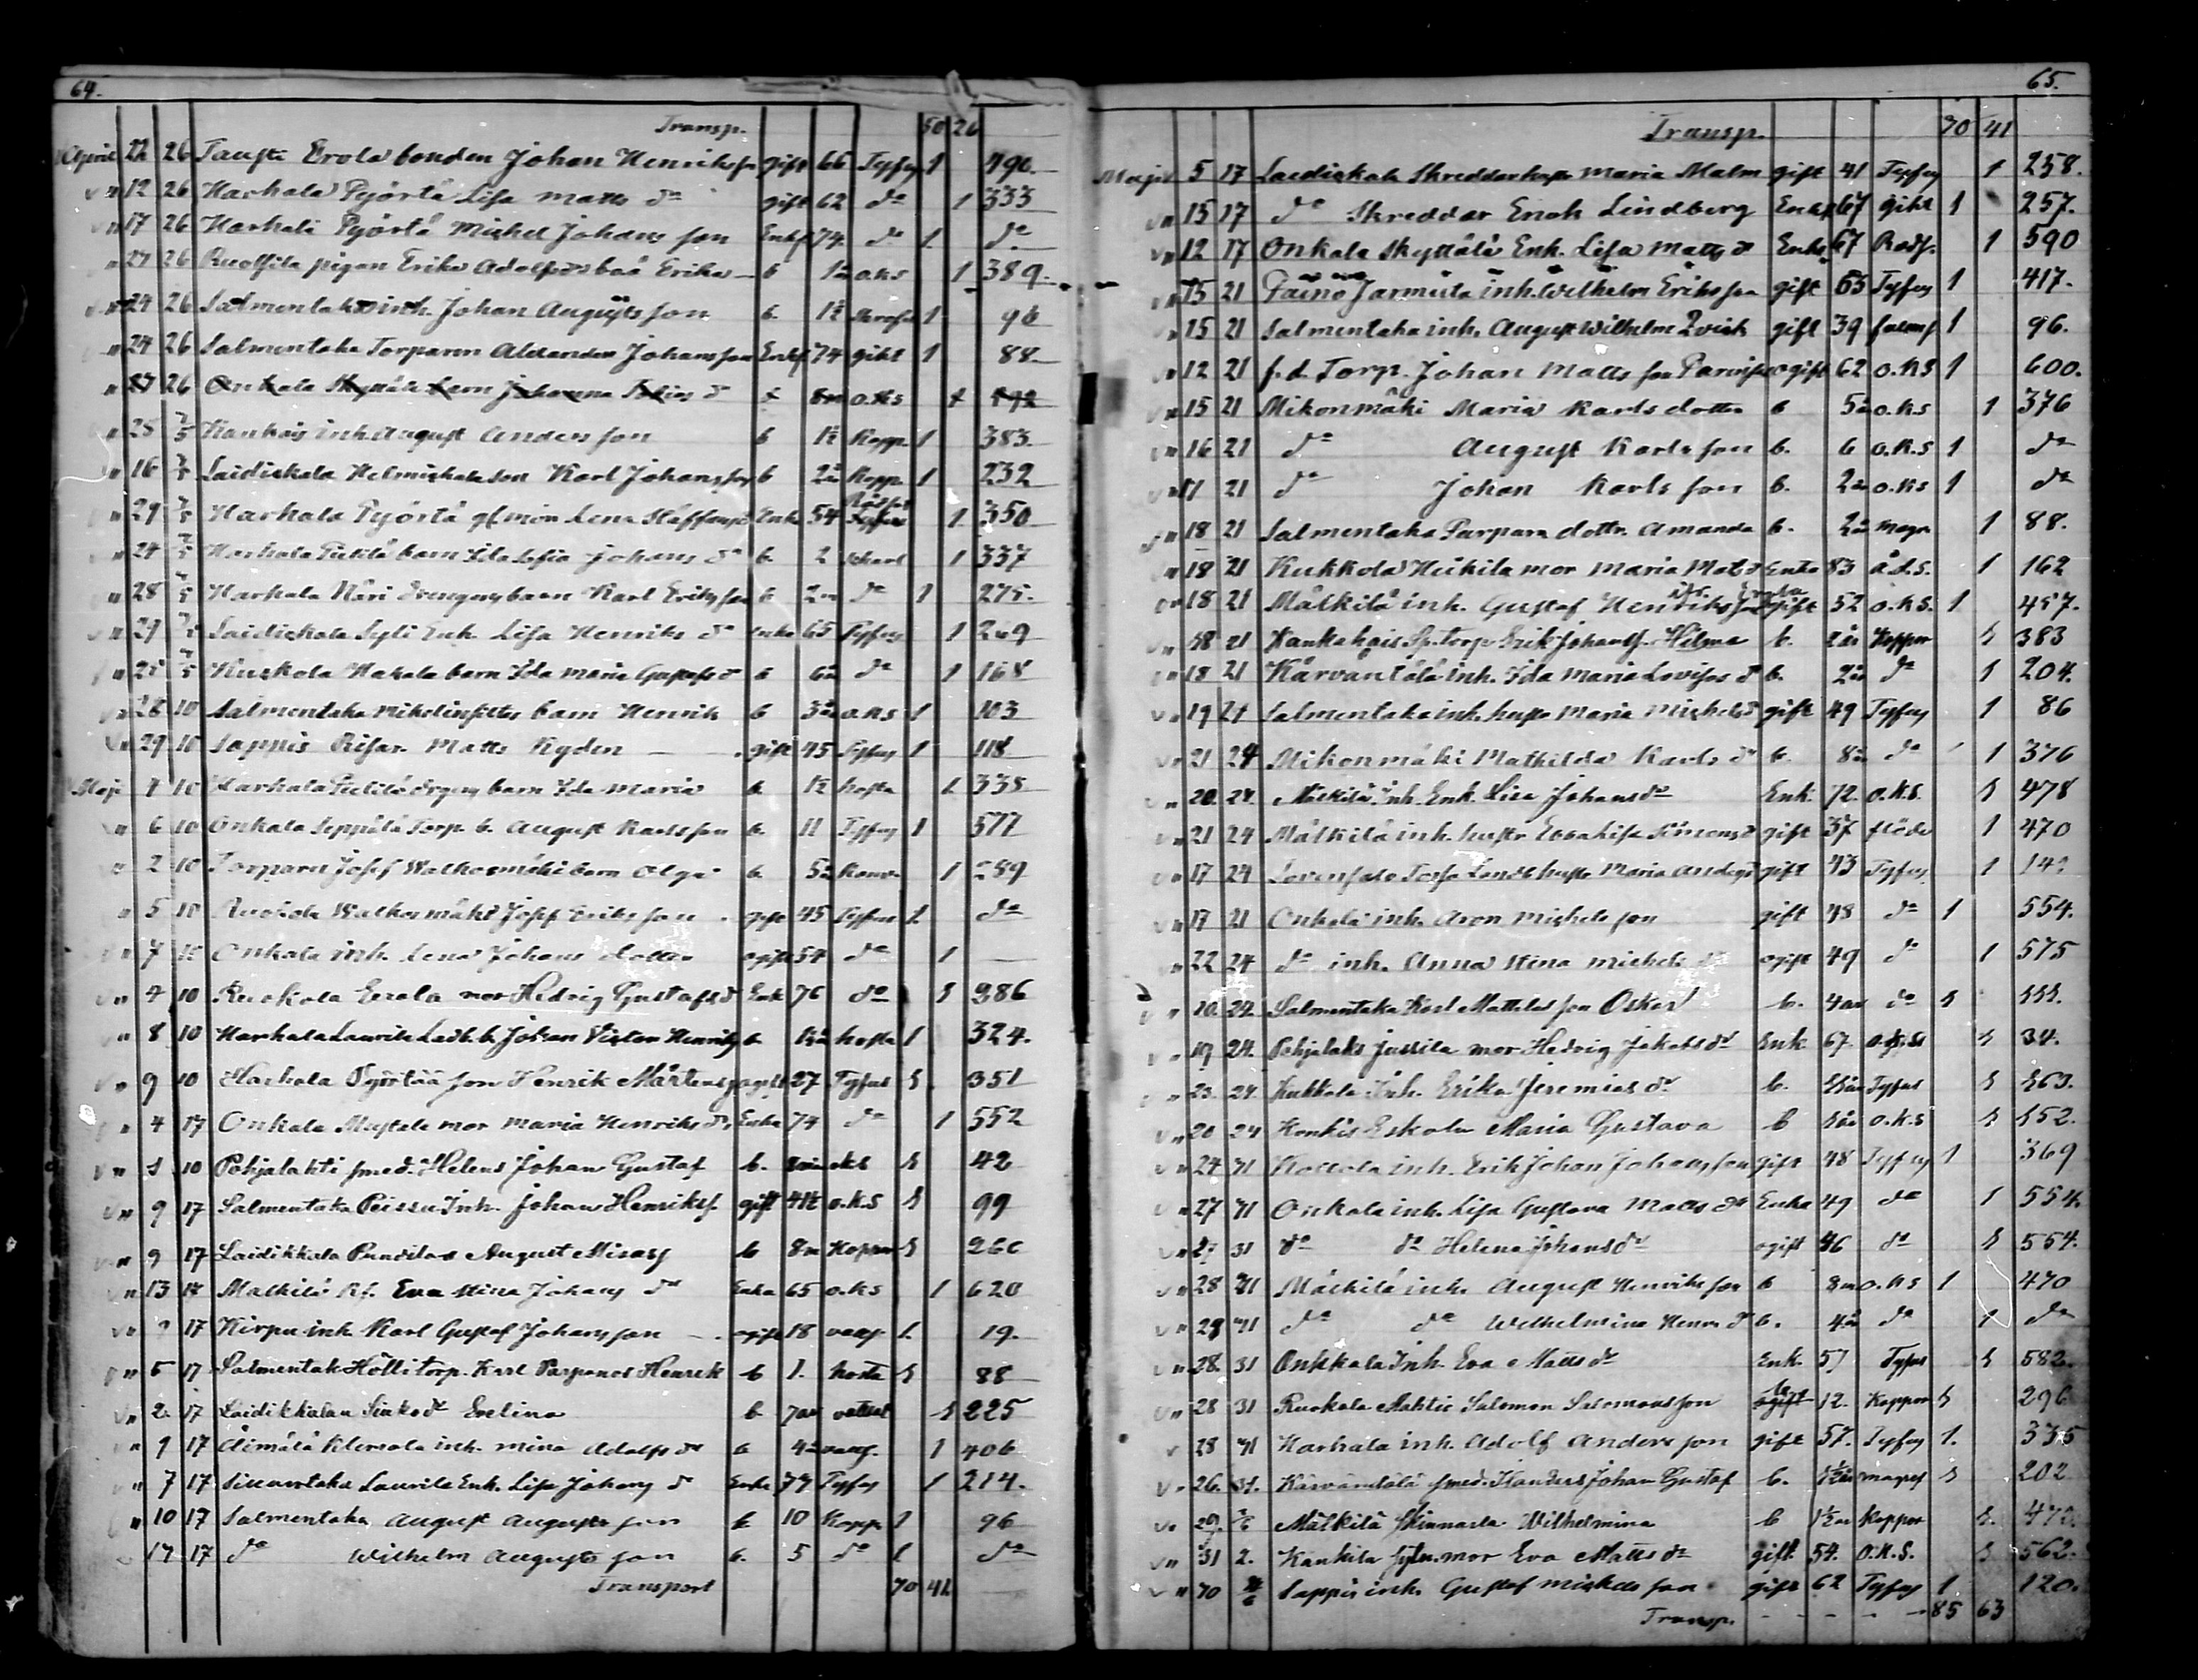 64.
Transp. 50 26
April 22 26 Tausti Erola bonden Johan Henriksson gift 66 Tyfus 1 490.
" 12 26 Harhala Pyörtä Lisa Matts dr gift 62 do 1 333
" 17 26 Harhala Pyörtä Michel Johans son Enkl 74 do 1 do
" 27 26 Ruokola pigan Erika Adolfsdrs barn Erika b 1 o.k.s 1 389.
" 24 26 Salmentaka inh. Johan Augusts son b. 1½ 1 96
" 24 26 Salmentaka Torparen Alexander Johansson Enkl 74 gikt 1 88.
" 27 26 Onkala Skyttälä barn Johanna dr b 8m o.k.s 1 592
" 25 3/5 Kankais inh August Anders son b 1½ Kopp. 1 383.
" 16 3/5 Laidiskala Helmiskala son Karl Johansson b 2 år Kopp. 1 232
" 29 3/5 Harhala Pyörtä gl. mor Lena Staffansdr Enka 54 Tyfus 1 350
" 24 3/5 Harhala Pietilä barn Ida Sofia Johans dr b. 2 Scharl 1 337
" 28 3/5 Harhala Näri drengens barn Karl Eriksson b 2 m do 1 275.
" 29 3/5 Laidiskala Syli Enk. Lisa Henriks dr enka 65 Tyfus 1 269
" 25 3/5 Kuskola Hakala barn Ida Maria Gustafs dr b 6 år do 1 168
" 28 10 Salmentaka Mikelinsilta barn Henrik b 3 år o.k.s 1 103
" 29 10 Sappis Matts Ryden gift 45 Tyfus 1 118
Maji 4 10 Harhala Pietilä drgens barn Ida Maria b. 1½ hosta 1 335
" 6 10 Onkala Seppälä Torp. b. August Karlsson b. 11 Tyfus 1 577
" 2 10 Torparen Josef Walkosmäki barn Olga b. 5 år 1 289
" 5 10 Ruokola Walkosmäki Josef Eriks son gift 45 Tyfus 1 do
" 7 10 Onkala inh. Lena Johans dotter ogift 54 do 1 —
" 4 10 Ruokola Eerola mor Hedvig Gustafsdr Enk 76 do 1 286
" 8 10 Harhala Laurila Ladb. b. Johan Victor Henriks b. 1½ år hosta 1 324.
" 9 10 Harhala Pyörtää son Henrik Mårtenss ogift 27 Tyfus 1 351
" 4 17 Onkala Mustala mor Maria Henriks dr Enka 74 do 1 552
" 1 10 Pohjalahti smed. Helens Johan Gustaf b. 1 42
" 9 17 Salmentaka Peissu Inh. Johan Henrikss. gift 41½ o.k.s 1 99
" 9 17 Laidikkala Pundilas August b 8m Kopp 1 260
" 13 17 Mälkilä Rf. Eva Stina Johans dr Enka 65 o.k.s 1 620
" 17 Kirpu inh Karl Gustaf Johansson ogift 18 vatts. 1 19.
" 5 17 Salmentak Hölli torp. Karl Henrik b 1. hosta 1 88
" 2. 17 Laidikkala Evelina b 7 år vattsot 1 225
" 1 17 Äimälä Klemola inh. Mina Adolfs dr b 4 år vatts. 1 406
" 7 17 Salmentaka Laurila Enk. Lisa Johans dr Enka 77 Tyfus 1 214.
" 10 17 Salmentaka August Augusts son b 10 Kopp. 1 96
" 17 17 do Wilhelm Augusts son b. 5 do 1 do
Transport 70 41
65.
Transp. 70 41
Maji 5 17 Laidiskala Skreddar hustr Maria Malm gift 41 Tyfus 1 258.
" 15 17 do Skreddar Enok Lindberg Enkl 67 gikt 1 257.
" 12 17 Onkala Skyttälä Enk. Lisa Matts dr Enka 67 Rödf. 1 590
" 15 21 Päinö Jarmuta inh. Wilhelm Eriksson gift 63 Tyfus 1 417.
" 15 21 Salmentaka inh. August Wilhelm Qvick gift 39 1 96.
" 12 21 f.d. Torp. Johan Matts son ogift 62 o.k.s 1 600.
" 15 21 Mikonmäki Maria Karls dotter b 5 år o.k.s 1 376
" 16 21 do August Karls son b. 6 o.k.s 1 do
" 17 21 do Johan Karls son b. 2 år o.k.s 1 do
" 18 21 Salmentaka Parpara dottr. Amanda b. 2 år Magr 1 88.
" 18 21 Kukkola Heikila mor Maria Matsdr Enka 83 å.d.s. 1 162
" 18 21 Mälkilä inh. Gustaf Henriksson gift 52 o.k.s. 1 457.
" 18 21 Kankahais Sp. torp. Erik Johanss. Hilma b. 2 år Koppor 1 383
" 18 21 Kärväntälä inh. Ida Maria Lovisas dr b. 2 år do 1 204.
" 19 21 Salmentaka inh. hustr Maria Michelsdr gift 49 Tyfus 1 86
" 21 24 Mikonmäki Mathilda Karls dr b. 8 år do 1 376
" 20. 24. Mälkilä Inh. Enk. Lisa Johansdr Enk. 72. o.k.s. 1 478
" 21 24 Mälkilä inh. hustr Eva Lisa Simonsdr gift 37 flöde 1 470
" 17 24 Lorensalo Torp. hustr Maria Andersdr gift 43 Tyfus 1 142
" 17 21 Onkala inh. Aron Michels son gift 48 do 1 554.
" 22 24 do inh. Anna Stina Michels dr ogift 49 do 1 575
" 10. 24. Salmentaka Karl Mattilas son Oskar b. 4 år do 1 111.
" 19 24. Pohjalaks Jussila mor Hedvig Jakobsdr Enk 67. o.k.s 1 34.
" 23. 24. Kukkola Inh. Erika Jeremias dr b. Tyfus 1 163.
" 20 24 Konkis Eskola Maria Gustava b 1 år o.k.s 1 152.
" 24 31 Kollola inh. Erik Johan Johansson gift 48 Tyfus 1 369
" 27 31 Onkala inh. Lisa Gustava Matts dr Enka 49 do 1 554.
" 27 31 do do Helena Johansdr ogift 46 do 1 554.
" 28 31 Mälkilä inh. August Henriks son b 8m o.k.s 1 470
" 28 31 do do Wilhelmina Henr. dr b. 4 år do 1 do
" 28. 31 Onkkala Inh. Eva Matts dr Enk. 57 Tyfus 1 582.
" 28 31 Ruokola Mahtis Salomon Salomonsson b 12. Koppor 1 296
" 28 31 Harhala inh. Adolf Anders son gift 57. Tyfus 1. 335
" 26. 31. Kärväntälä smed. Johan Gustaf b. 1½ år 1 202
" 29. Mälkilä Skinnarla Wilhelmina b 1½ år Koppor 1. 470.
" 31 2. Kankila mor Eva Matts dr gift 54. o.k.s. 1 562.
" 30 Sappis inh. Gustaf Michels son gift 62 Tyfus 1 120.
Transp. 85 63